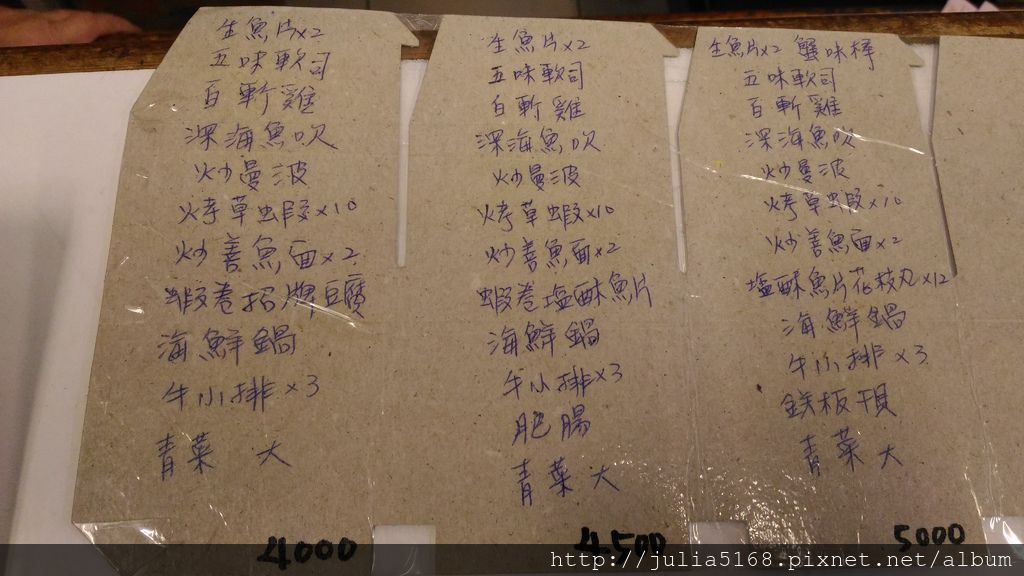 生魚片x2
五味軟司
百斬雞
深海魚吹
炒曼波
烤草蝦x10
炒善魚面x2
蝦卷招牌豆腐
海鮮鍋
牛小排x3
青菜 大
4000
生魚片x2
五味軟司
白斬雞
深海魚吹
炒曼波
烤草蝦x10
炒善魚面x2
蝦卷塩酥魚片
海鮮鍋
牛小排x3
肥腸
青菜 大
4500
生魚片x2 蟹味棒
五味軟司
百斬雞
深海魚吹
炒曼波
烤草蝦x10
炒善魚面x2
塩酥魚片花枝丸x12
海鮮鍋
牛小排x3
鉄板干貝
青菜 大
5000
http://julia5168.pixnet.net/album